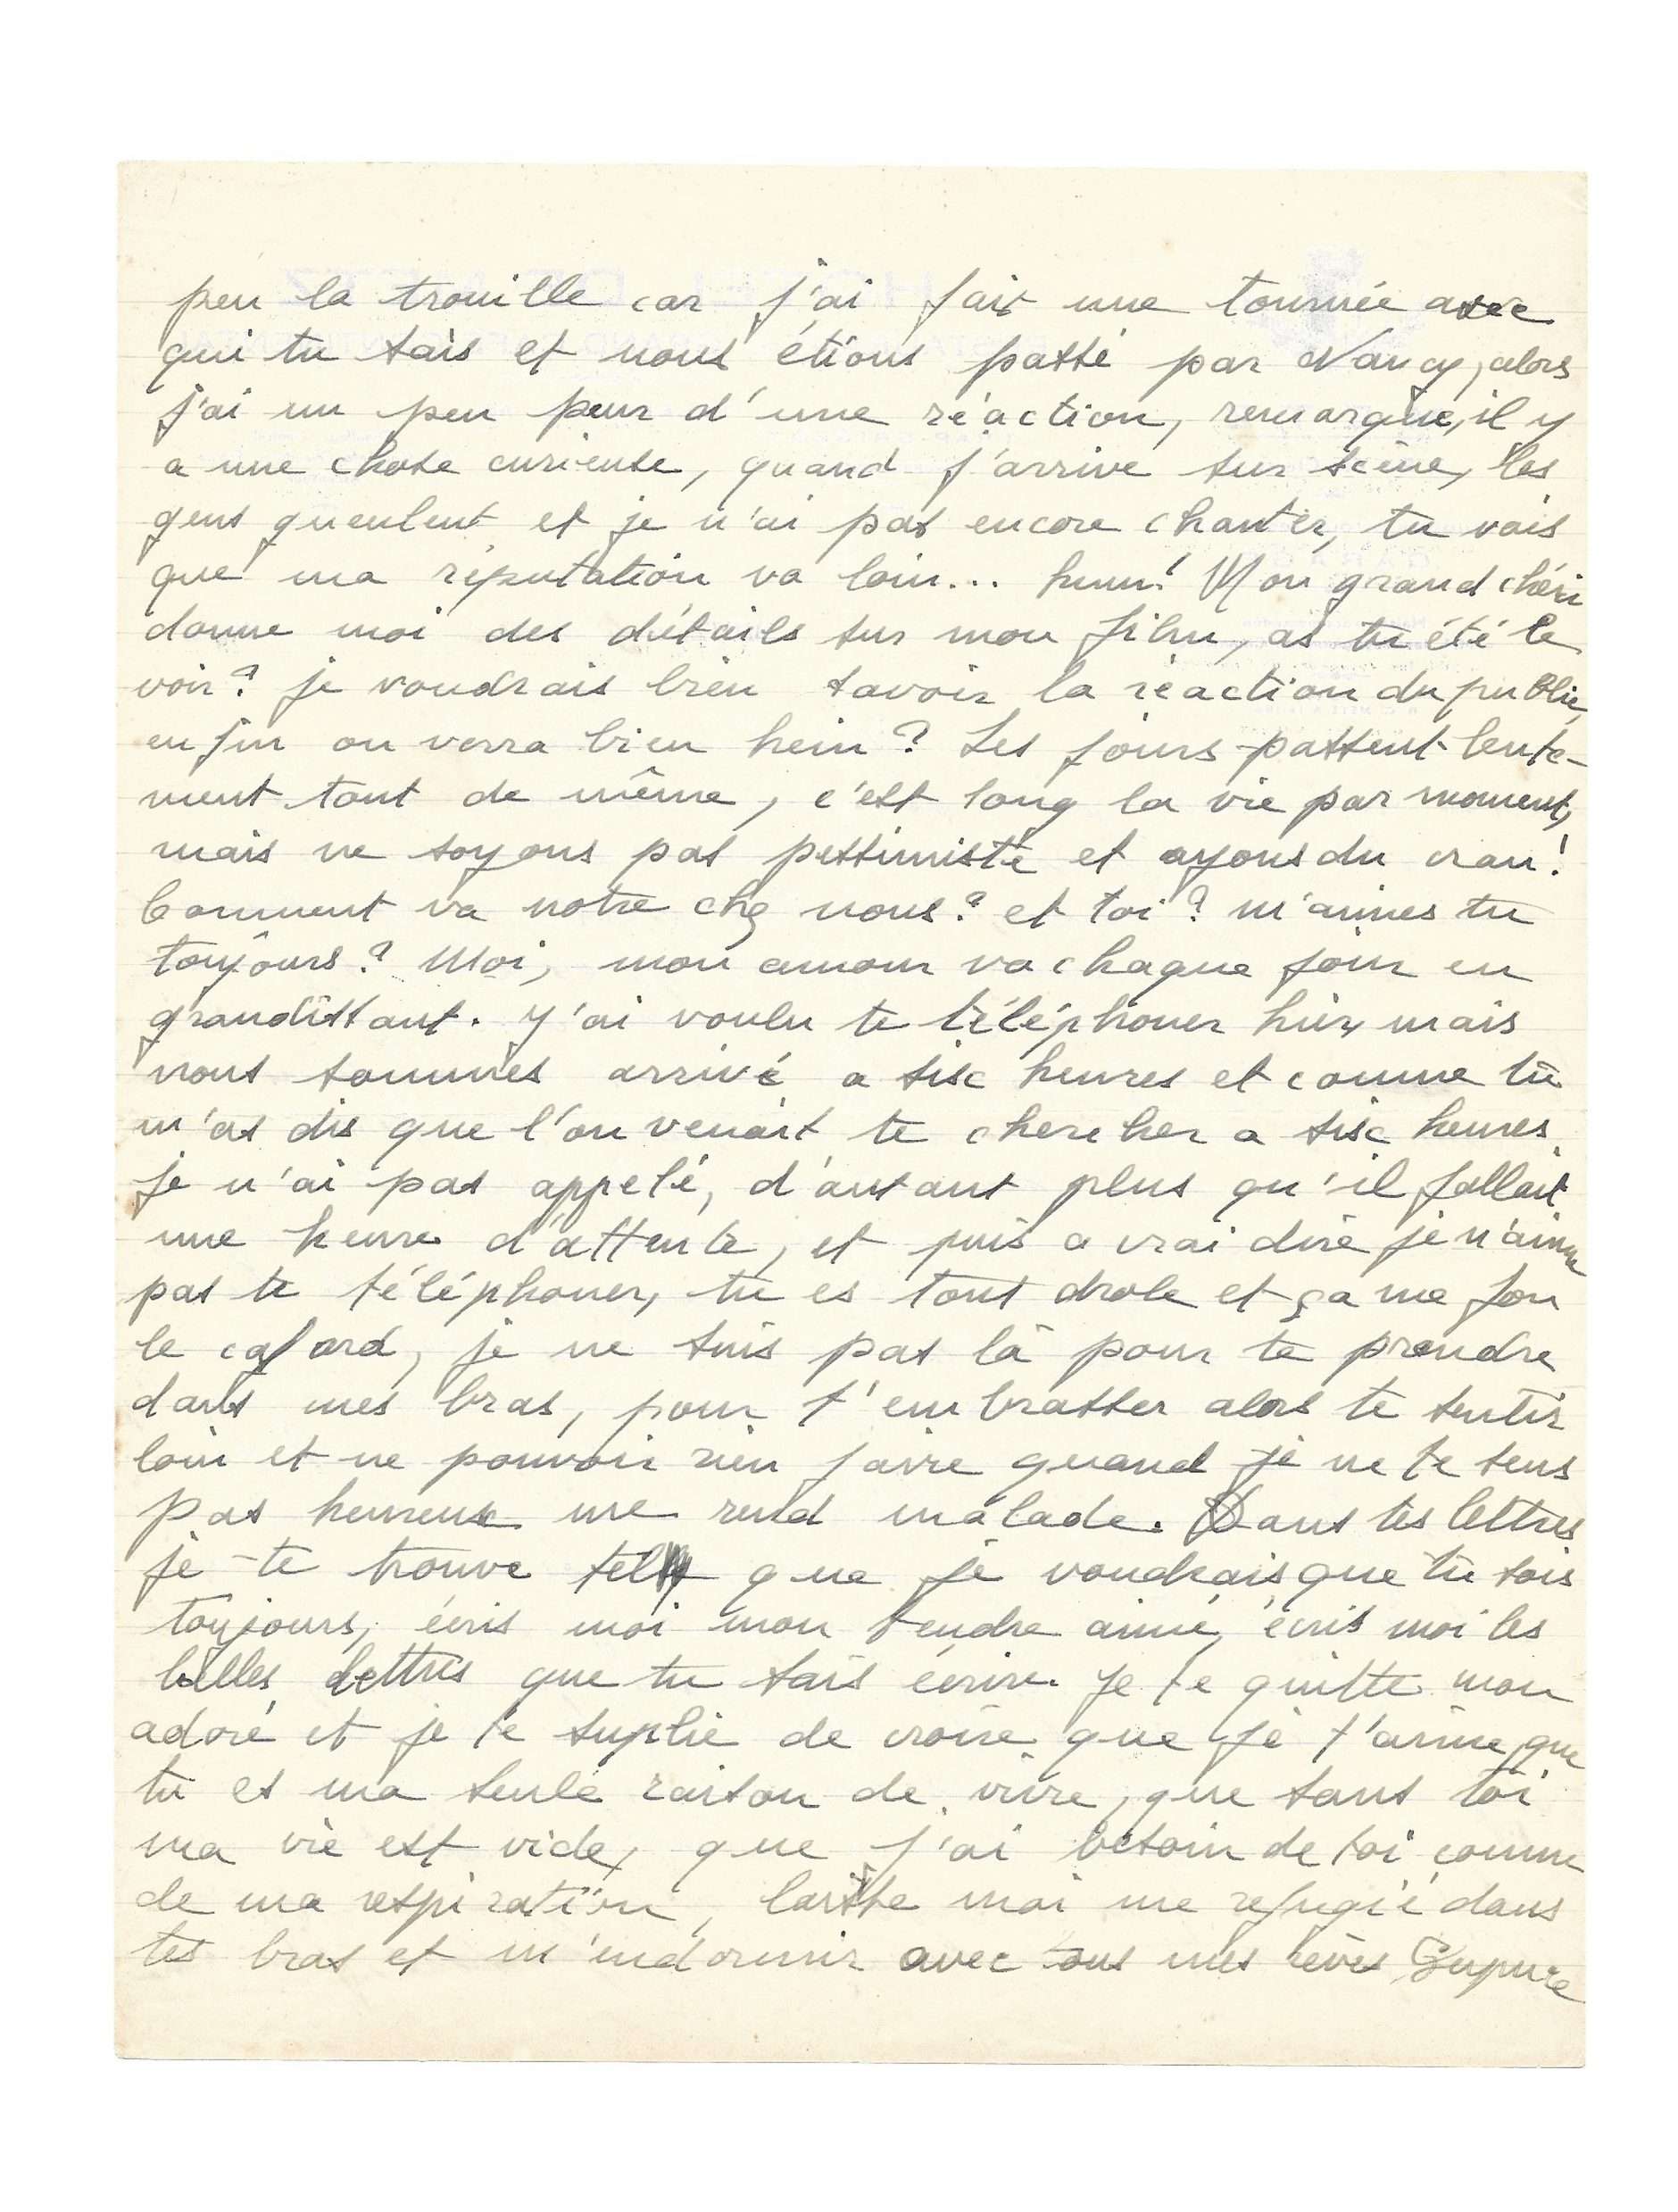 peu la trouille car j'ai fait une tournée avec
qui tu sais et nous étions passé par Nancy, alors
j'ai un peu peur d'une réaction, remarque, il y
a une chose curieuse, quand j'arrive sur scène, les
gens gueulent et je n'ai pas encore chanter, tu vois
que ma réputation va loin... hum! Mon grand chéri
donne moi des détails sur mon film, as tu été le
voir? je voudrais bien savoir la réaction du public,
enfin on verra bien hein? Les jours passent lente-
ment tout de même, c'est long la vie par moment,
mais ne soyons pas pessimiste et ayons du cran!
Comment va notre chez nous? et toi? m'aimes tu
toujours? Moi, mon amour va chaque jour en
grandissant. J'ai voulu te téléphoner hier mais
nous sommes arrivé a six heures et comme tu
m'as dis que l'on venait te chercher a six heures
je n'ai pas appelé, d'autant plus qu'il fallait
une heure d'attente, et puis a vrai dire je n'aime
pas te téléphoner, tu es tout drole et ça me fou
le cafard, je ne suis pas là pour te prendre
dans mes bras, pour t'embrasser alors te sentir
loin et ne pouvoir rien faire quand je ne te sens
pas heureux me rend malade. Dans tes lettres
je te trouve tel que je voudrais que tu sois
toujours, écris moi mon tendre aimé, écris moi les
belles lettres que tu sais écrire. Je te quitte mon
adoré et je te suplie de croire que je t'aime, que
tu es ma seule raison de vivre, que sans toi
ma vie est vide, que j'ai besoin de toi comme
de ma respiration, laisse moi me refugié dans
tes bras et m'endormir avec tous mes rêves